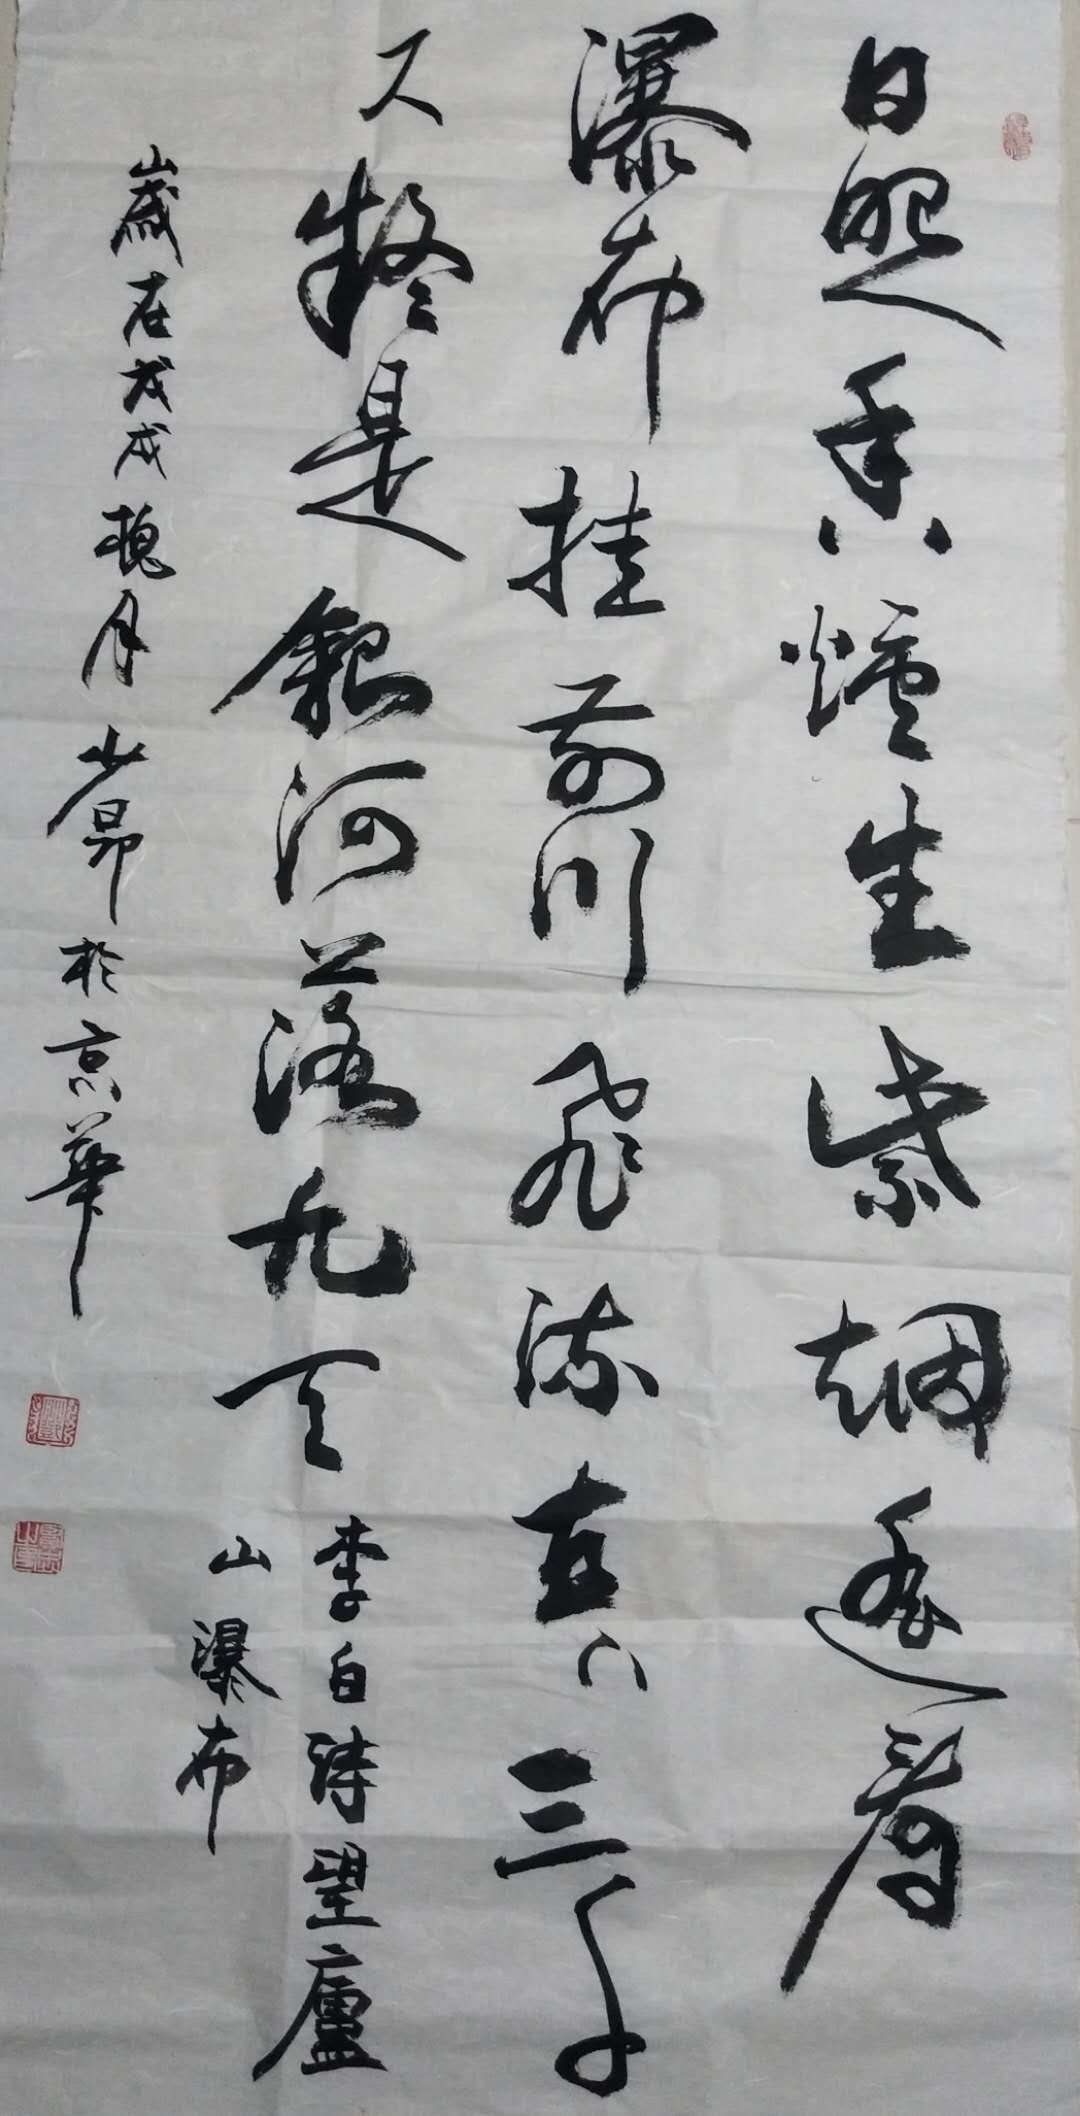 日照香爐生紫烟遥看
瀑布挂前川飛流直下三千
尺疑是銀河落九天
李白詩望廬
山瀑布
歲在戊戌槐月少昂於京華